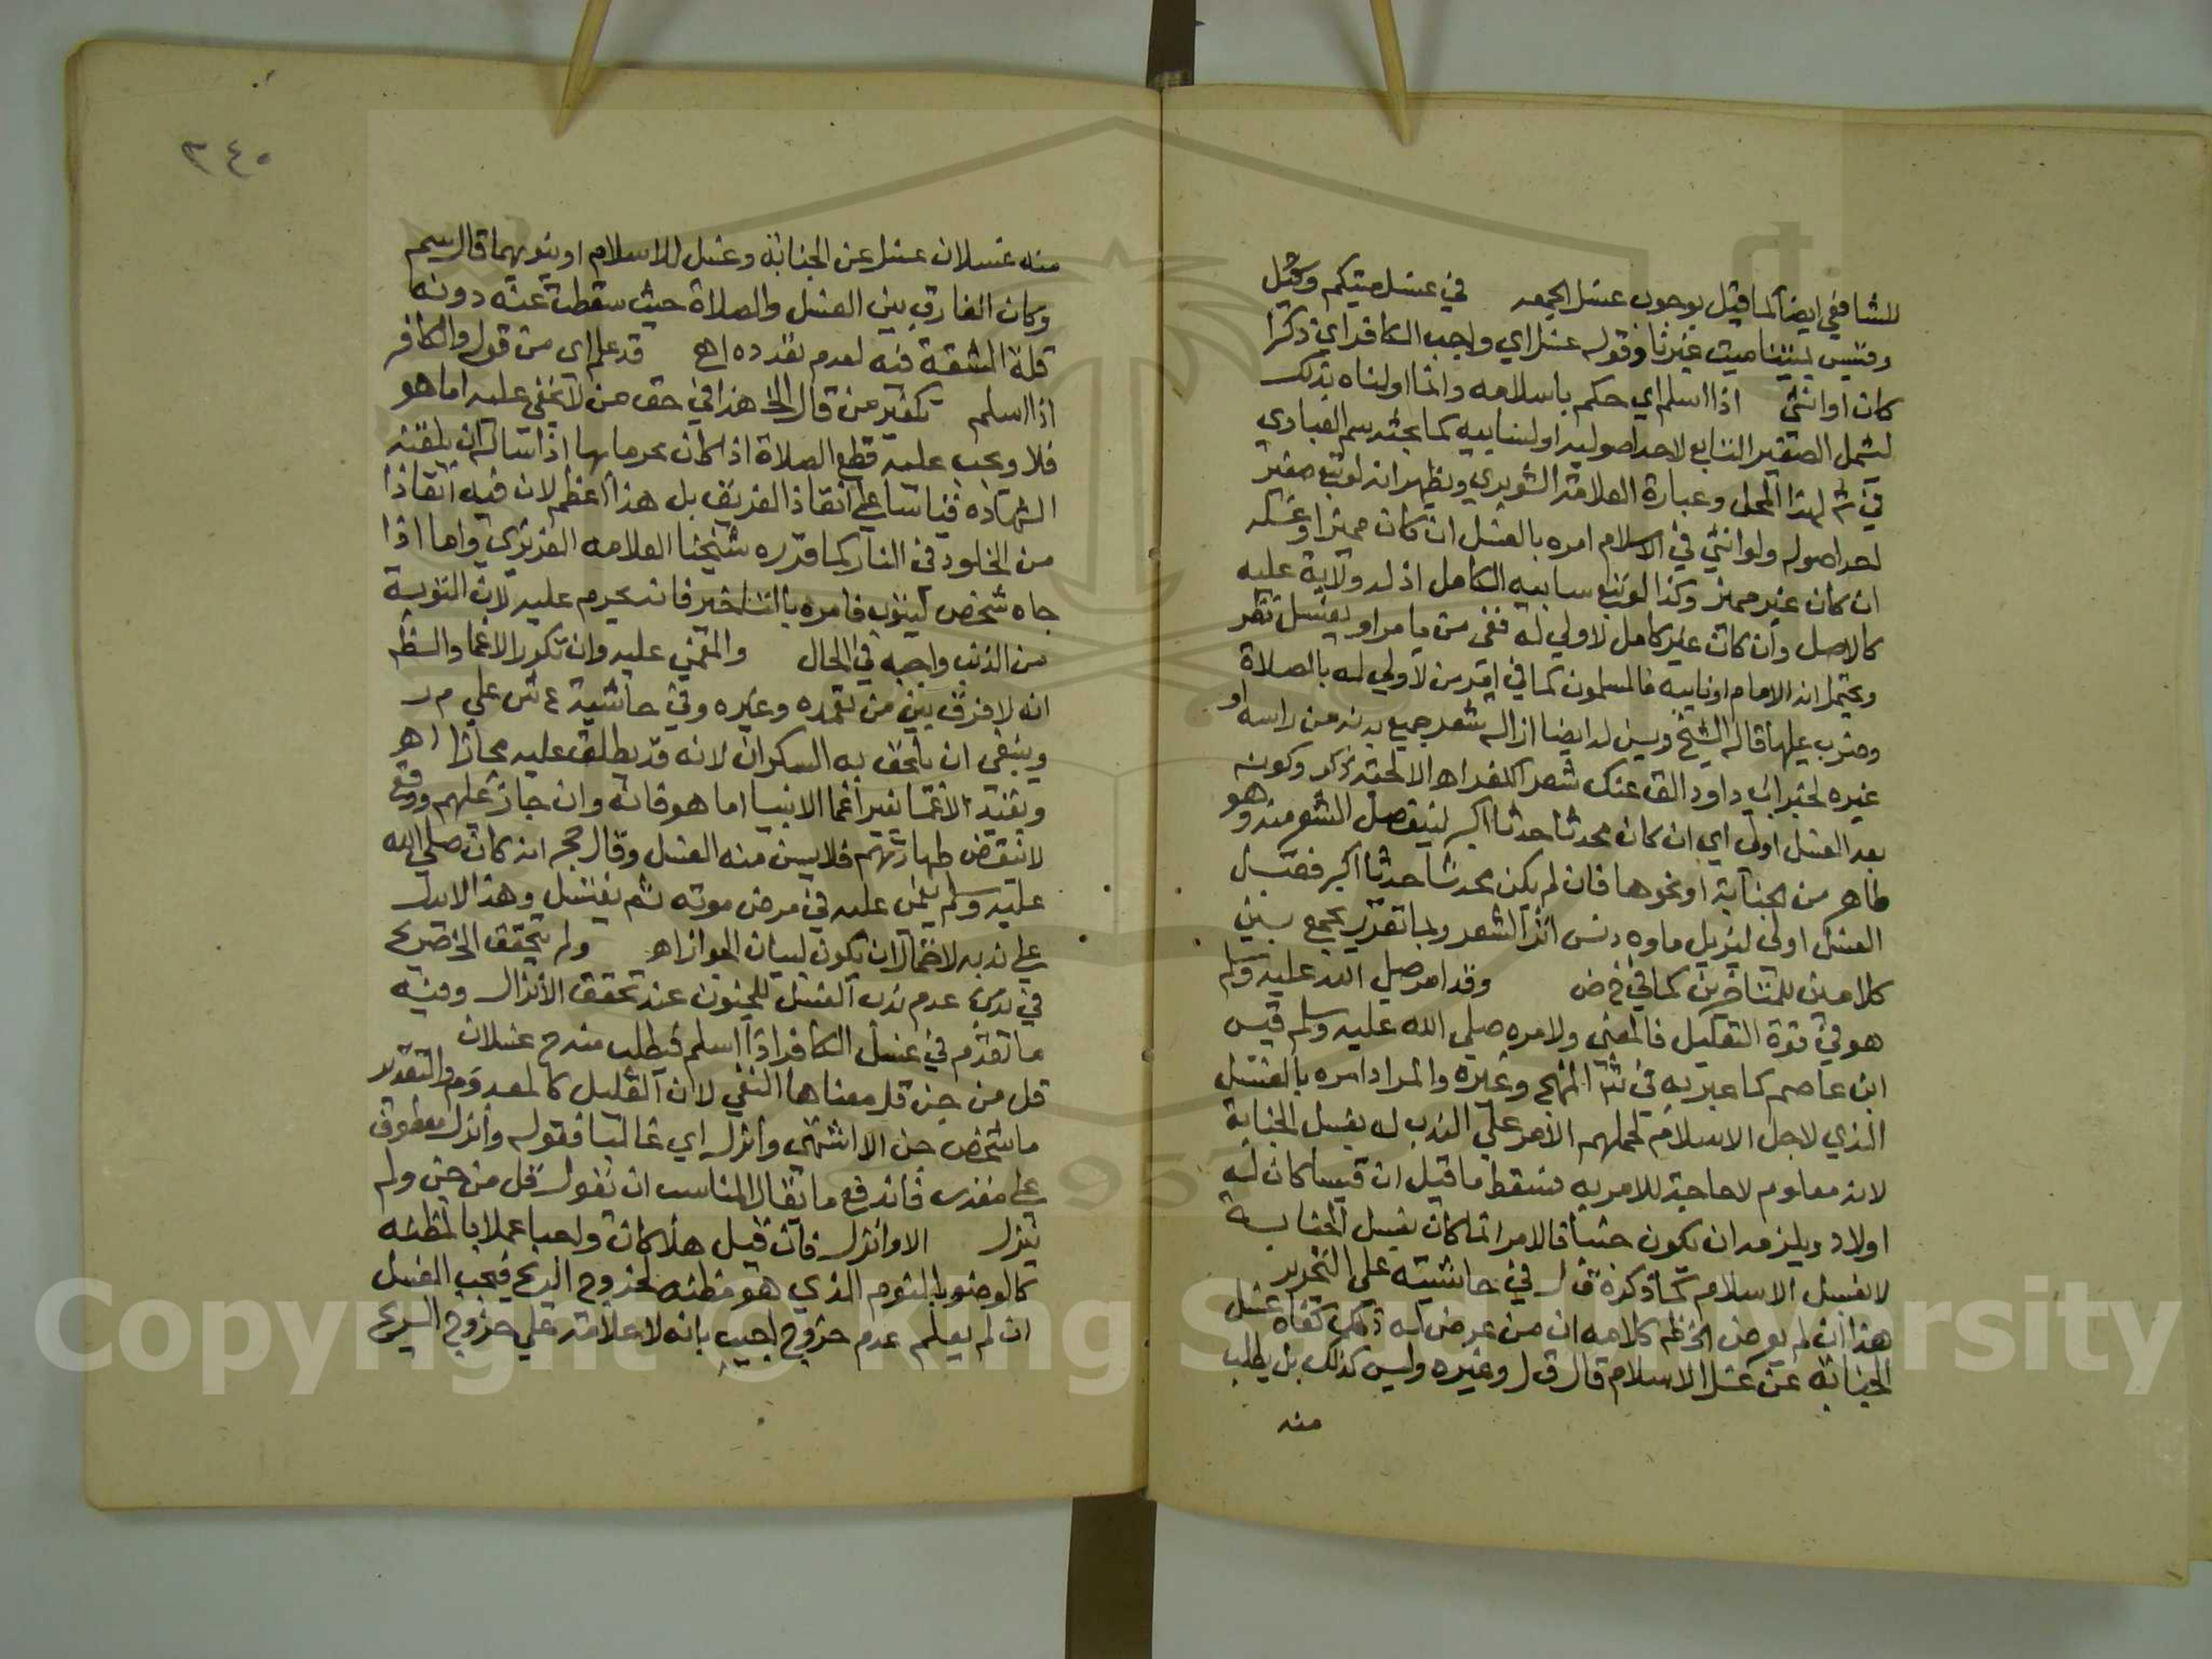 للشافعي ايضا كما قيل بوجوب غسل الجمعه في غسل ميتكم وقيل
وقيس بميتنا ميت غيرنا وقوله غسل اي واجب الكافر اي ذكرا
كان او انثي اذا اسلم اي حكم باسلامه وانما اولناه بذلك
ليشمل الصغير التابع لاحد اصوليه او لسابيه كما بحثه سم العبادي
في لهذا المحل وعبارة العلامة الشوبري ويظهر انه لو تبع صغير
احد اصوله ولو انثي في الاسلام امره بالغسل ان كان مميزا وغسله
ان كان غير مميز وكذا لو تبع سابيه الكامل اذ له ولاية عليه
كالاصل وان كان غير كامل لا ولي له ففي من يامر او يغسل نظر
ويحتمل انه الامام او نايبه فالمسلمون كما في امر من لا ولي له بالصلاة
وضرب عليها قاله الشيخ ويسن له ايضا ازالة شعر جميع بدنه من راسه او
غيره لخبر ابي داود الق عنك شعر الكفر اهـ الا لحية ذكر وكونه
بعد الغسل اولي اي ان كان محدثا حدثا اكبر لينفصل الشعر منه وهو
طاهر من الجنابة او نحوها فان لم يكن محدثا حدثا اكبر فقبل
الغسل اولي ليزيل ماوه دنس اثر الشعر وبما تقرر يجمع بين
كلامين للمتاخرين كما في خ ض وقد امر صلي الله عليه وسلم
هو في قوة التعليل فالمعني ولامره صلي الله عليه وسلم قيس
ابن عاصم كما عبر به في المنهج وغيره والمراد امره بالغسل
الذي لاجل الاسلام لحملهم الامر علي الندب لا بغسل الجنابة
لانه معلوم لا حاجة للامر به فسقط ما قيل ان قيسا كان له
اولاد ويلزمه ان يكون جنبا فالامر انما كان بغسل الجنابة
لا بغسل الاسلام كما ذكره ق ل في حاشيته علي التحرير
هذا ان لم يعرض الخ ظم كلامه ان من عرض له ذلك كفاه غسل
الجنابة عن غسل الاسلام قال ق ل وغيره وليس كذلك بل يطلب
منه
٢٤٥
منه غسلان غسل عن الجنابة وغسل للاسلام او ينويهما قال سم
وكان الفارق بين الغسل والصلاة حيث سقطت عنه دونه
قلة المشقة فيه لعدم تعدده اهـ قد علم اي من قوله والكافر
اذا اسلم تكفير من قال الخ هذا في حق من لا يخفي عليه اما هو
فلا ويجب عليه قطع الصلاة اذا كان محرما بها اذا ساله ان يلقنه
الشهاده قياسا علي انقاذ الغريق بل هذا اعظم لان فيه انقاذا
من الخلود في النار كما قرره شيخنا العلامه العزيزي واما اذا
جاه شخص ليتوب فامره بالتاخير فانه يحرم عليه لان التوبة
من الذنب واجبه في الحال والمغمي عليه وان تكرر الاغما والظم
انه لا فرق بين من تعمده وغيره وفي حاشية ع ش علي م ر
وينبغي ان يلحق به السكران لانه قد يطلق عليه مجازا اهـ
وتقيد الاغما بغير اغما الانبيا اما هو فانه وان جاز عليهم ووقع
لا ينقض طهارتهم فلا يسن منه الغسل وقال حجر انه كان صلي الله
عليه وسلم يغمي عليه في مرض موته ثم يغتسل وهذا لا يدل
علي ندبه لاحتمال ان يكون لبيان الجواز اهـ ولم يتحقق الخ صريح
في عدم ندب الغسل للمجنون عند تحقق الانزال وفيه
ما تقدم في غسل الكافر اذا اسلم فيطلب منه ح غسلان
قل من جن قل معناها النفي لان القليل كالمعدوم والتقدير
ما شخص جن الا اشتهي وانزل اي غالبا فقوله وانزل معطوف
علي مقدر فاندفع ما يقال المناسب ان تقول قل من جن ولم
ينزل الا وانزل فان قيل هلا كان واجبا عملا بالمظنه
كالوضو بالنوم الذي هو مظنه لخروج الريح فيجب الغسل
ان لم يعلم عدم خروج اجيب بانه لا علامة علي خروج الريح
Copyright © King Saud University
1957